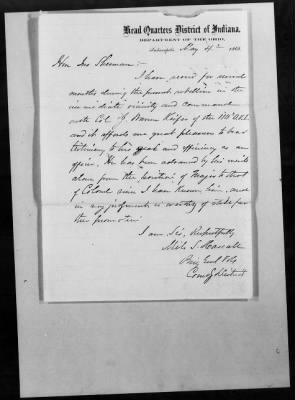 Head Quarters District of Indiana,
DEPARTMENT OF THE OHIO,
Indianapolis May 4th 1863
Hon Jno Sherman:—
I have served for several
months during the present rebellion in the
immediate vicinity and command
with Col J. Warren Keifer of the 110" O.V.I.
and it affords me great pleasure to bear
testimony to his and efficiency as an
officer. He has been advanced by his merits
alone from the position of Major to that
of Colonel since I have known him, and
in my judgment is worthy of
promotion
I am Sir, Respectfully
Milo S. Hascall
Brig Genl Vols
Comdg District